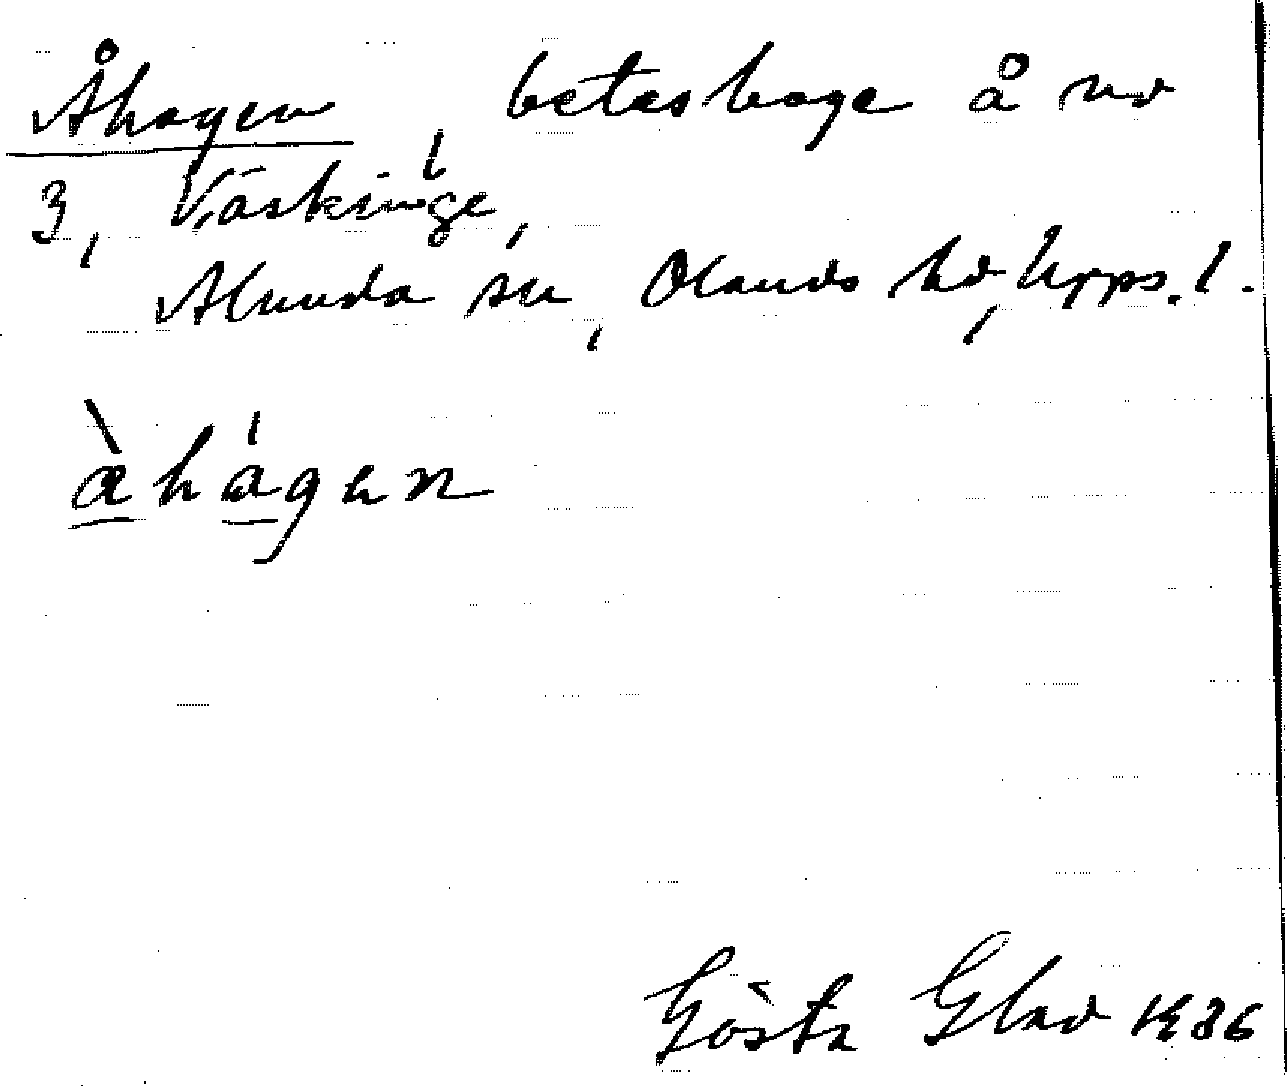 Åhagen, beteshage å nr
3, Väskinge,
Alunda sn, Olands hd, Upps. l.
àhágen
Gösta Glad 1936